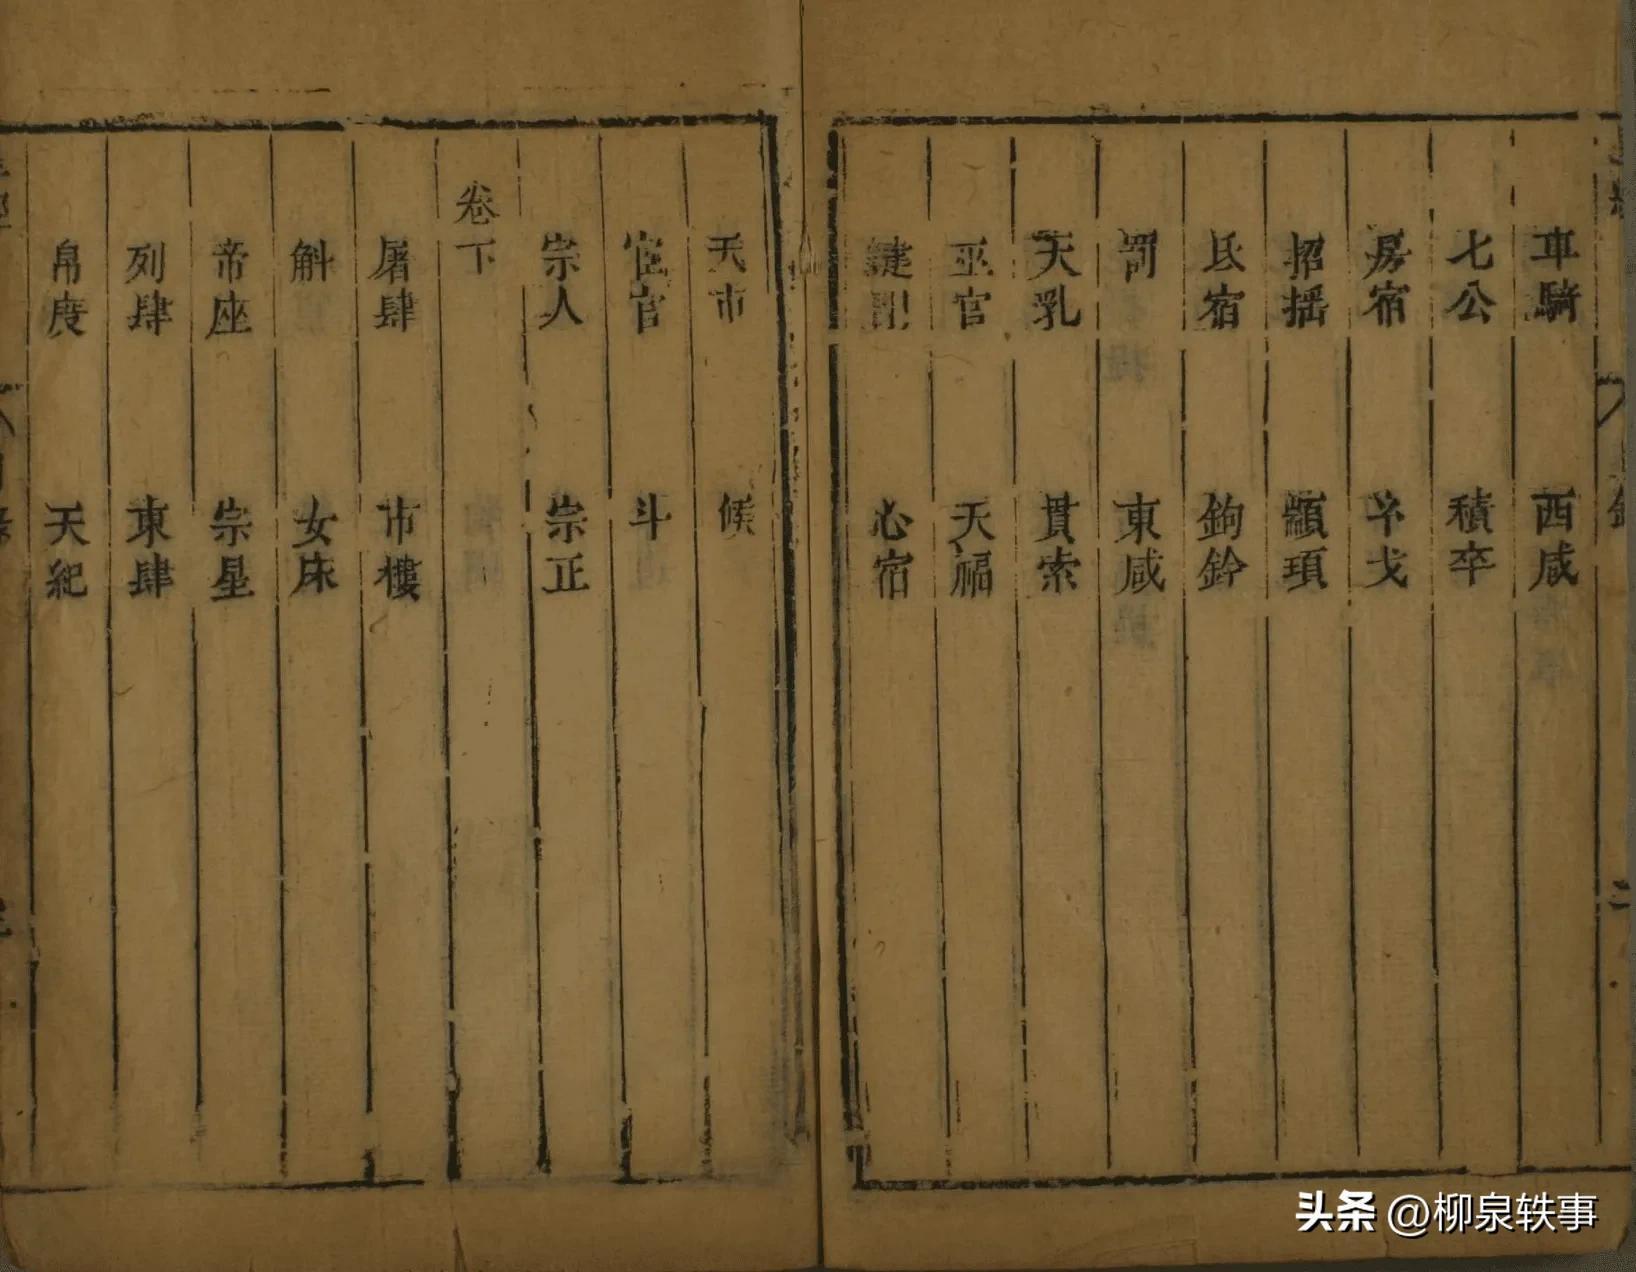 車騎 西咸
七公 積卒
房宿 戈
招摇 顓頊
氐宿 鉤鈐
罰 東咸
天乳 貫索
巫官 天福
鍵閉 心宿
天市 候
宦官 斗
宗人 宗正
卷下
屠肆 市樓
斛 女床
帝座 宗星
列肆 東肆
帛度 天紀
头条 @柳泉轶事